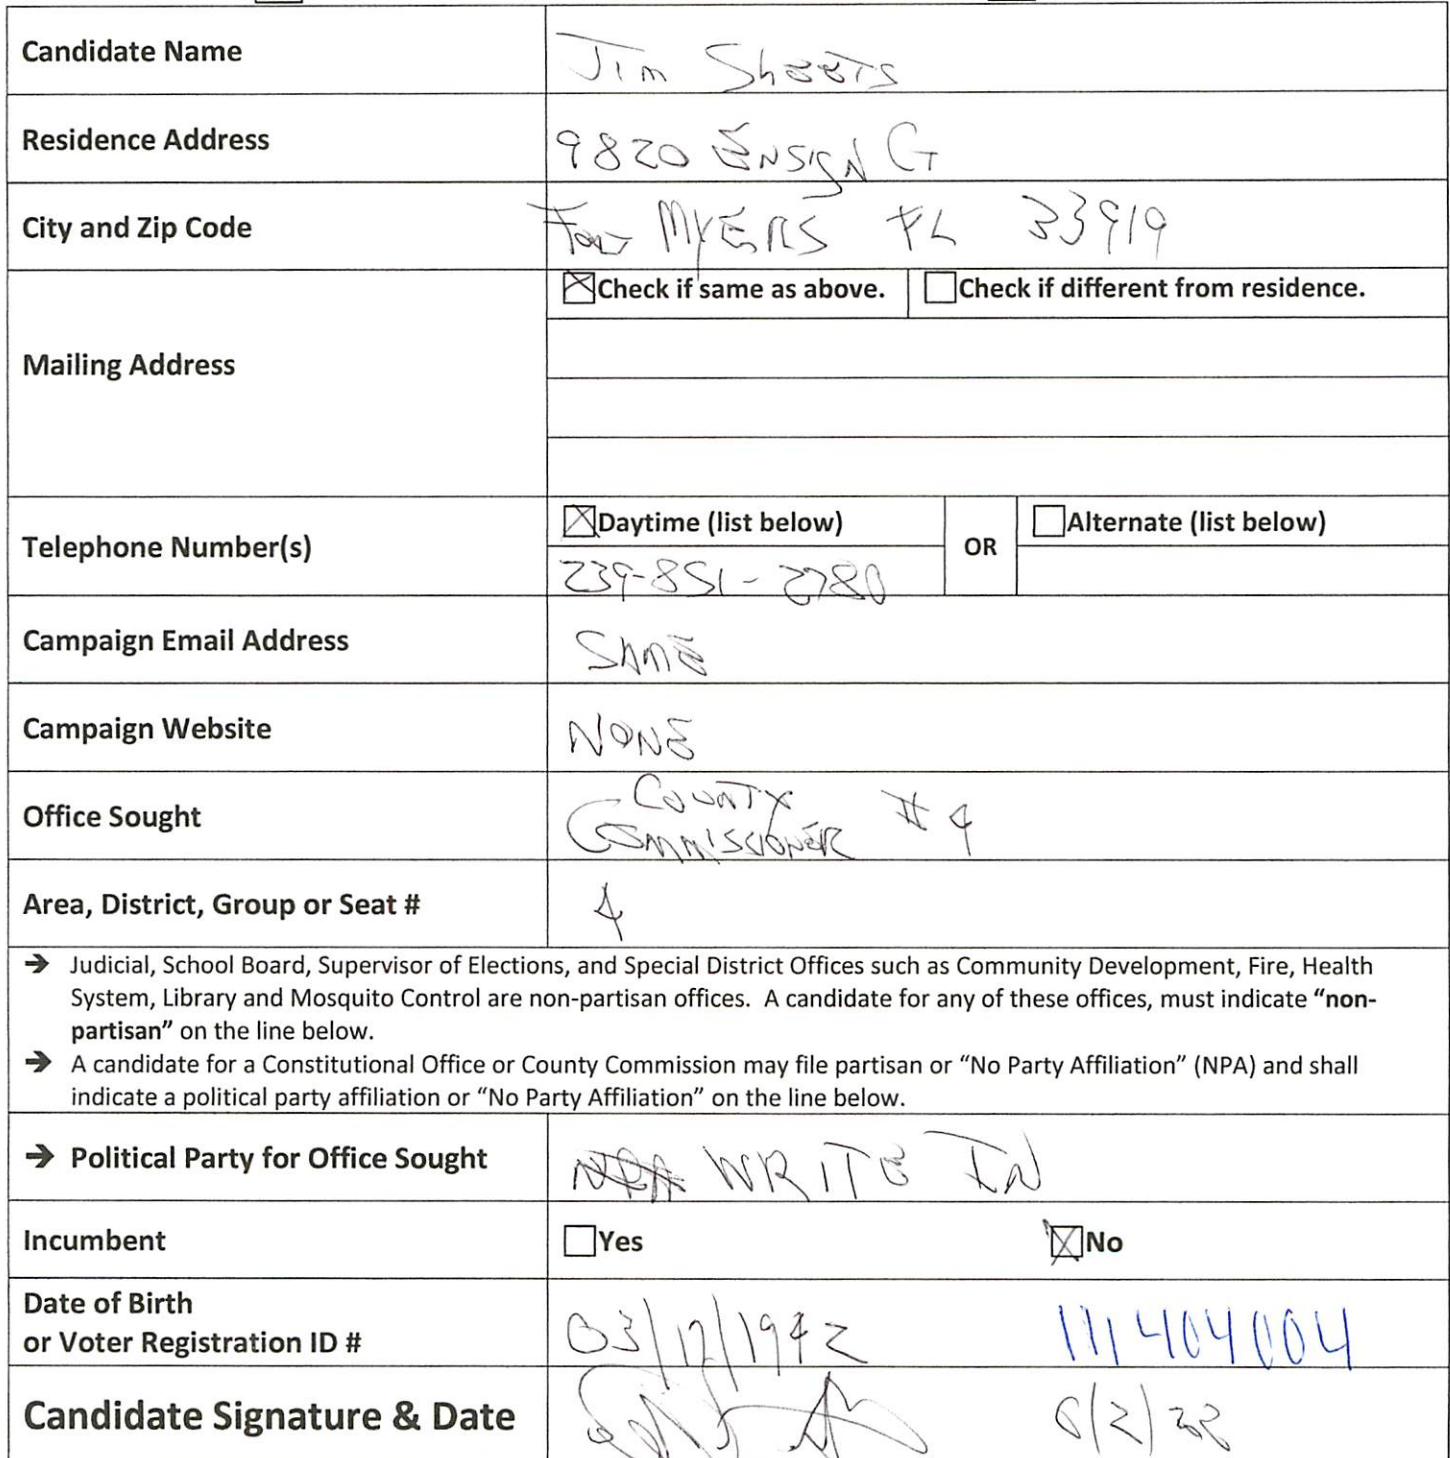 Candidate Name
Jim Sheets
Residence Address
9820 ENSIGN CT
City and Zip Code
Fort MYERS FL 33919
Mailing Address
Check if same as above.
Check if different from residence.
Telephone Number(s)
Daytime (list below)
OR
Alternate (list below)
239-851-2780
Campaign Email Address
SAME
Campaign Website
NONE
Office Sought
COUNTY
COMMISSIONER #4
Area, District, Group or Seat #
4
→ Judicial, School Board, Supervisor of Elections, and Special District Offices such as Community Development, Fire, Health
System, Library and Mosquito Control are non-partisan offices. A candidate for any of these offices, must indicate "non-
partisan" on the line below.
→ A candidate for a Constitutional Office or County Commission may file partisan or "No Party Affiliation" (NPA) and shall
indicate a political party affiliation or "No Party Affiliation" on the line below.
→ Political Party for Office Sought
NPA WRITE IN
Incumbent
Yes
No
Date of Birth
or Voter Registration ID #
03/12/1942
111404004
Candidate Signature & Date